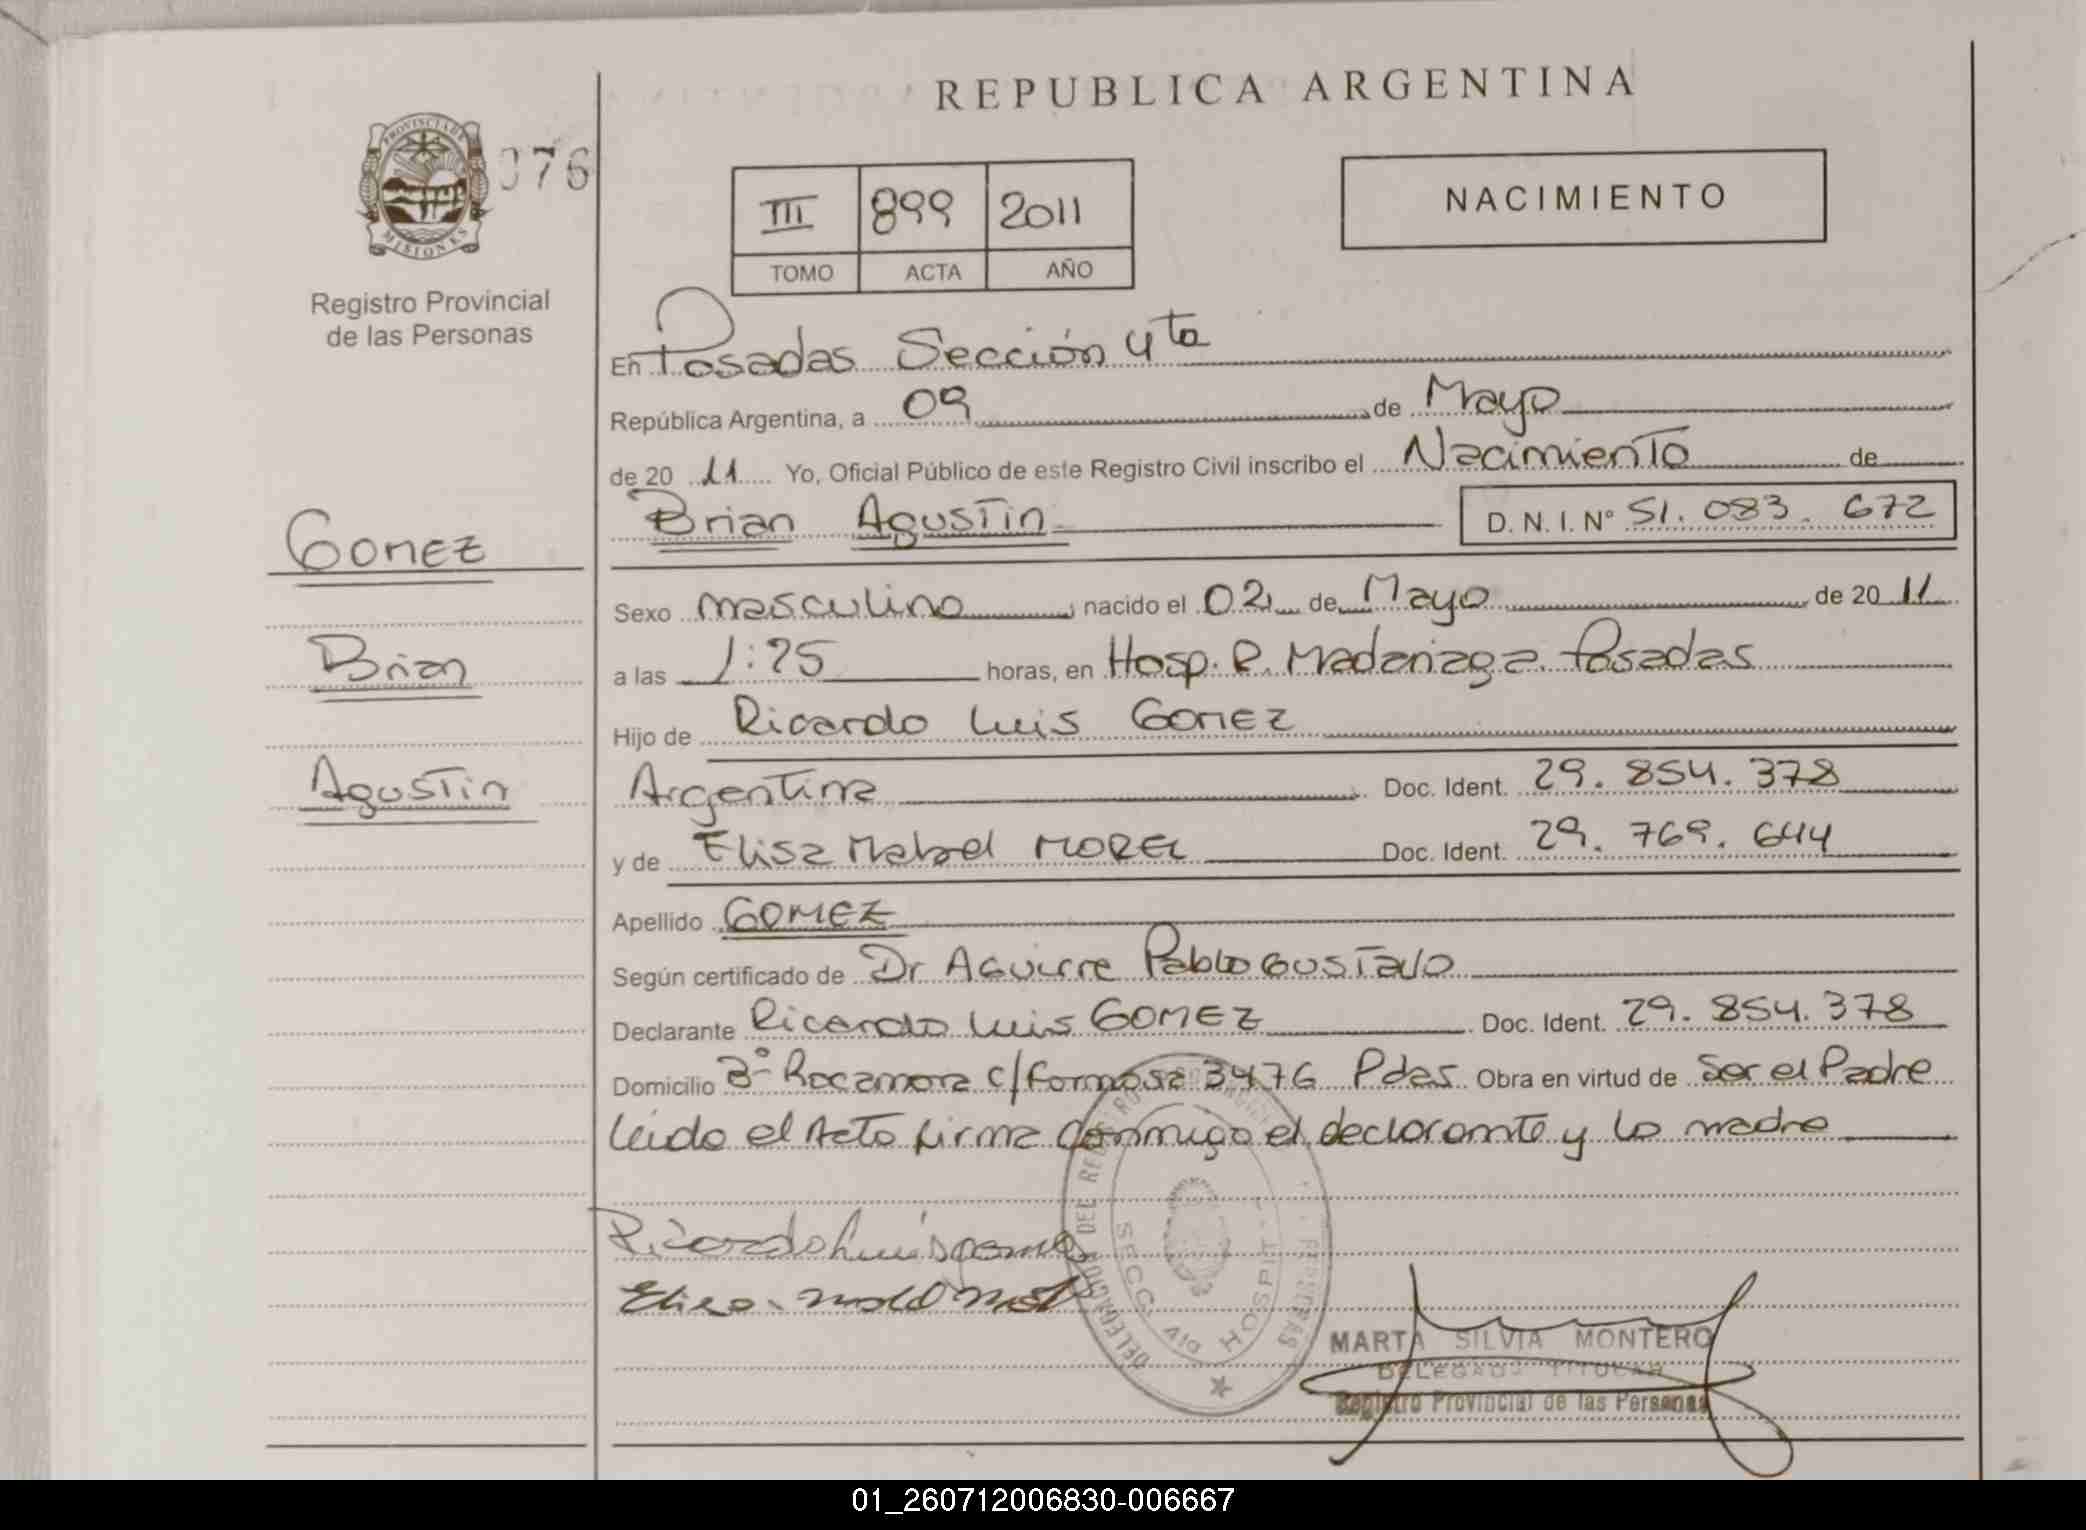 REPUBLICA ARGENTINA
PROVINCIA DE
MISIONES
076
Registro Provincial
de las Personas
III 899 2011
TOMO ACTA AÑO
NACIMIENTO
En Posadas Sección 4ta
República Argentina, a 09 de Mayo
de 20 11 Yo, Oficial Público de este Registro Civil inscribo el Nacimiento de
Brian Agustin D.N.I. Nº 51.083.672
GOMEZ
Brian
Agustin
Sexo masculino nacido el 02 de Mayo de 20 11
a las 1:25 horas, en Hosp. R. Madariaga. Posadas
Hijo de Ricardo Luis GOMEZ
Argentina Doc. Ident. 29.854.378
y de Elisa Mabel MOREL Doc. Ident. 29.769.644
Apellido GOMEZ
Según certificado de Dr Aguirre Pablo Gustavo
Declarante Ricardo Luis GOMEZ Doc. Ident. 29.854.378
Domicilio Bº Rocamora c/Formosa 3476 Pdas Obra en virtud de Ser el Padre
Leido el Acto firma conmigo el declarante y la madre
Ricardo Luis Gomez
Elisa
DELEGACION DEL
SECC. 4ta HOSPIT
MARTA SILVIA MONTERO
DELEGADA TITULAR
Registro Provincial de las Personas
01_260712006830-006667